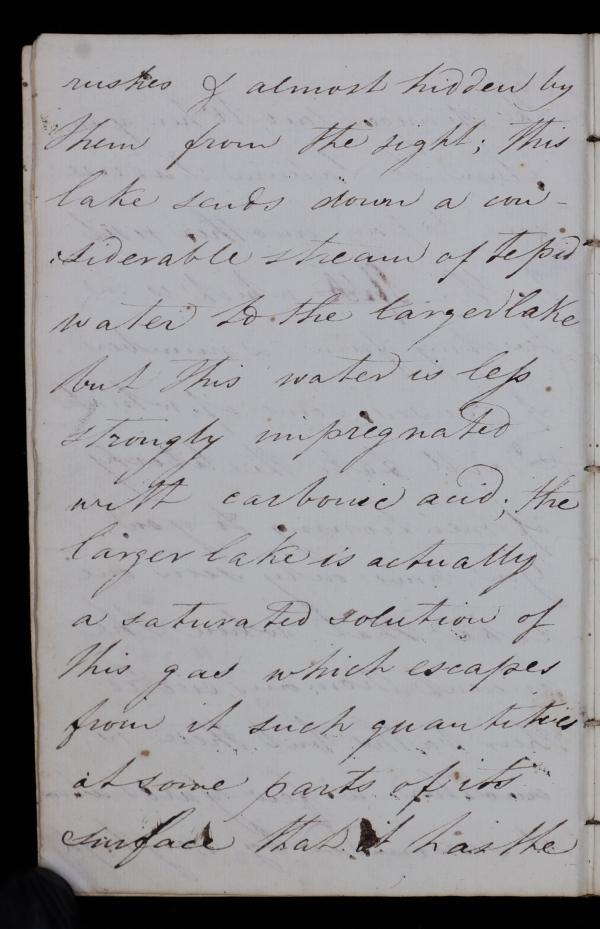 rushes & almost hidden by
them from the sight; this
lake sends down a con-
siderable stream of tepid
water to the larger lake
but this water is less
strongly impregnated
with carbonic acid; the
larger lake is actually
a saturated solution of
this gas which escapes
from it such quantities
at some parts of its
surface that it has the